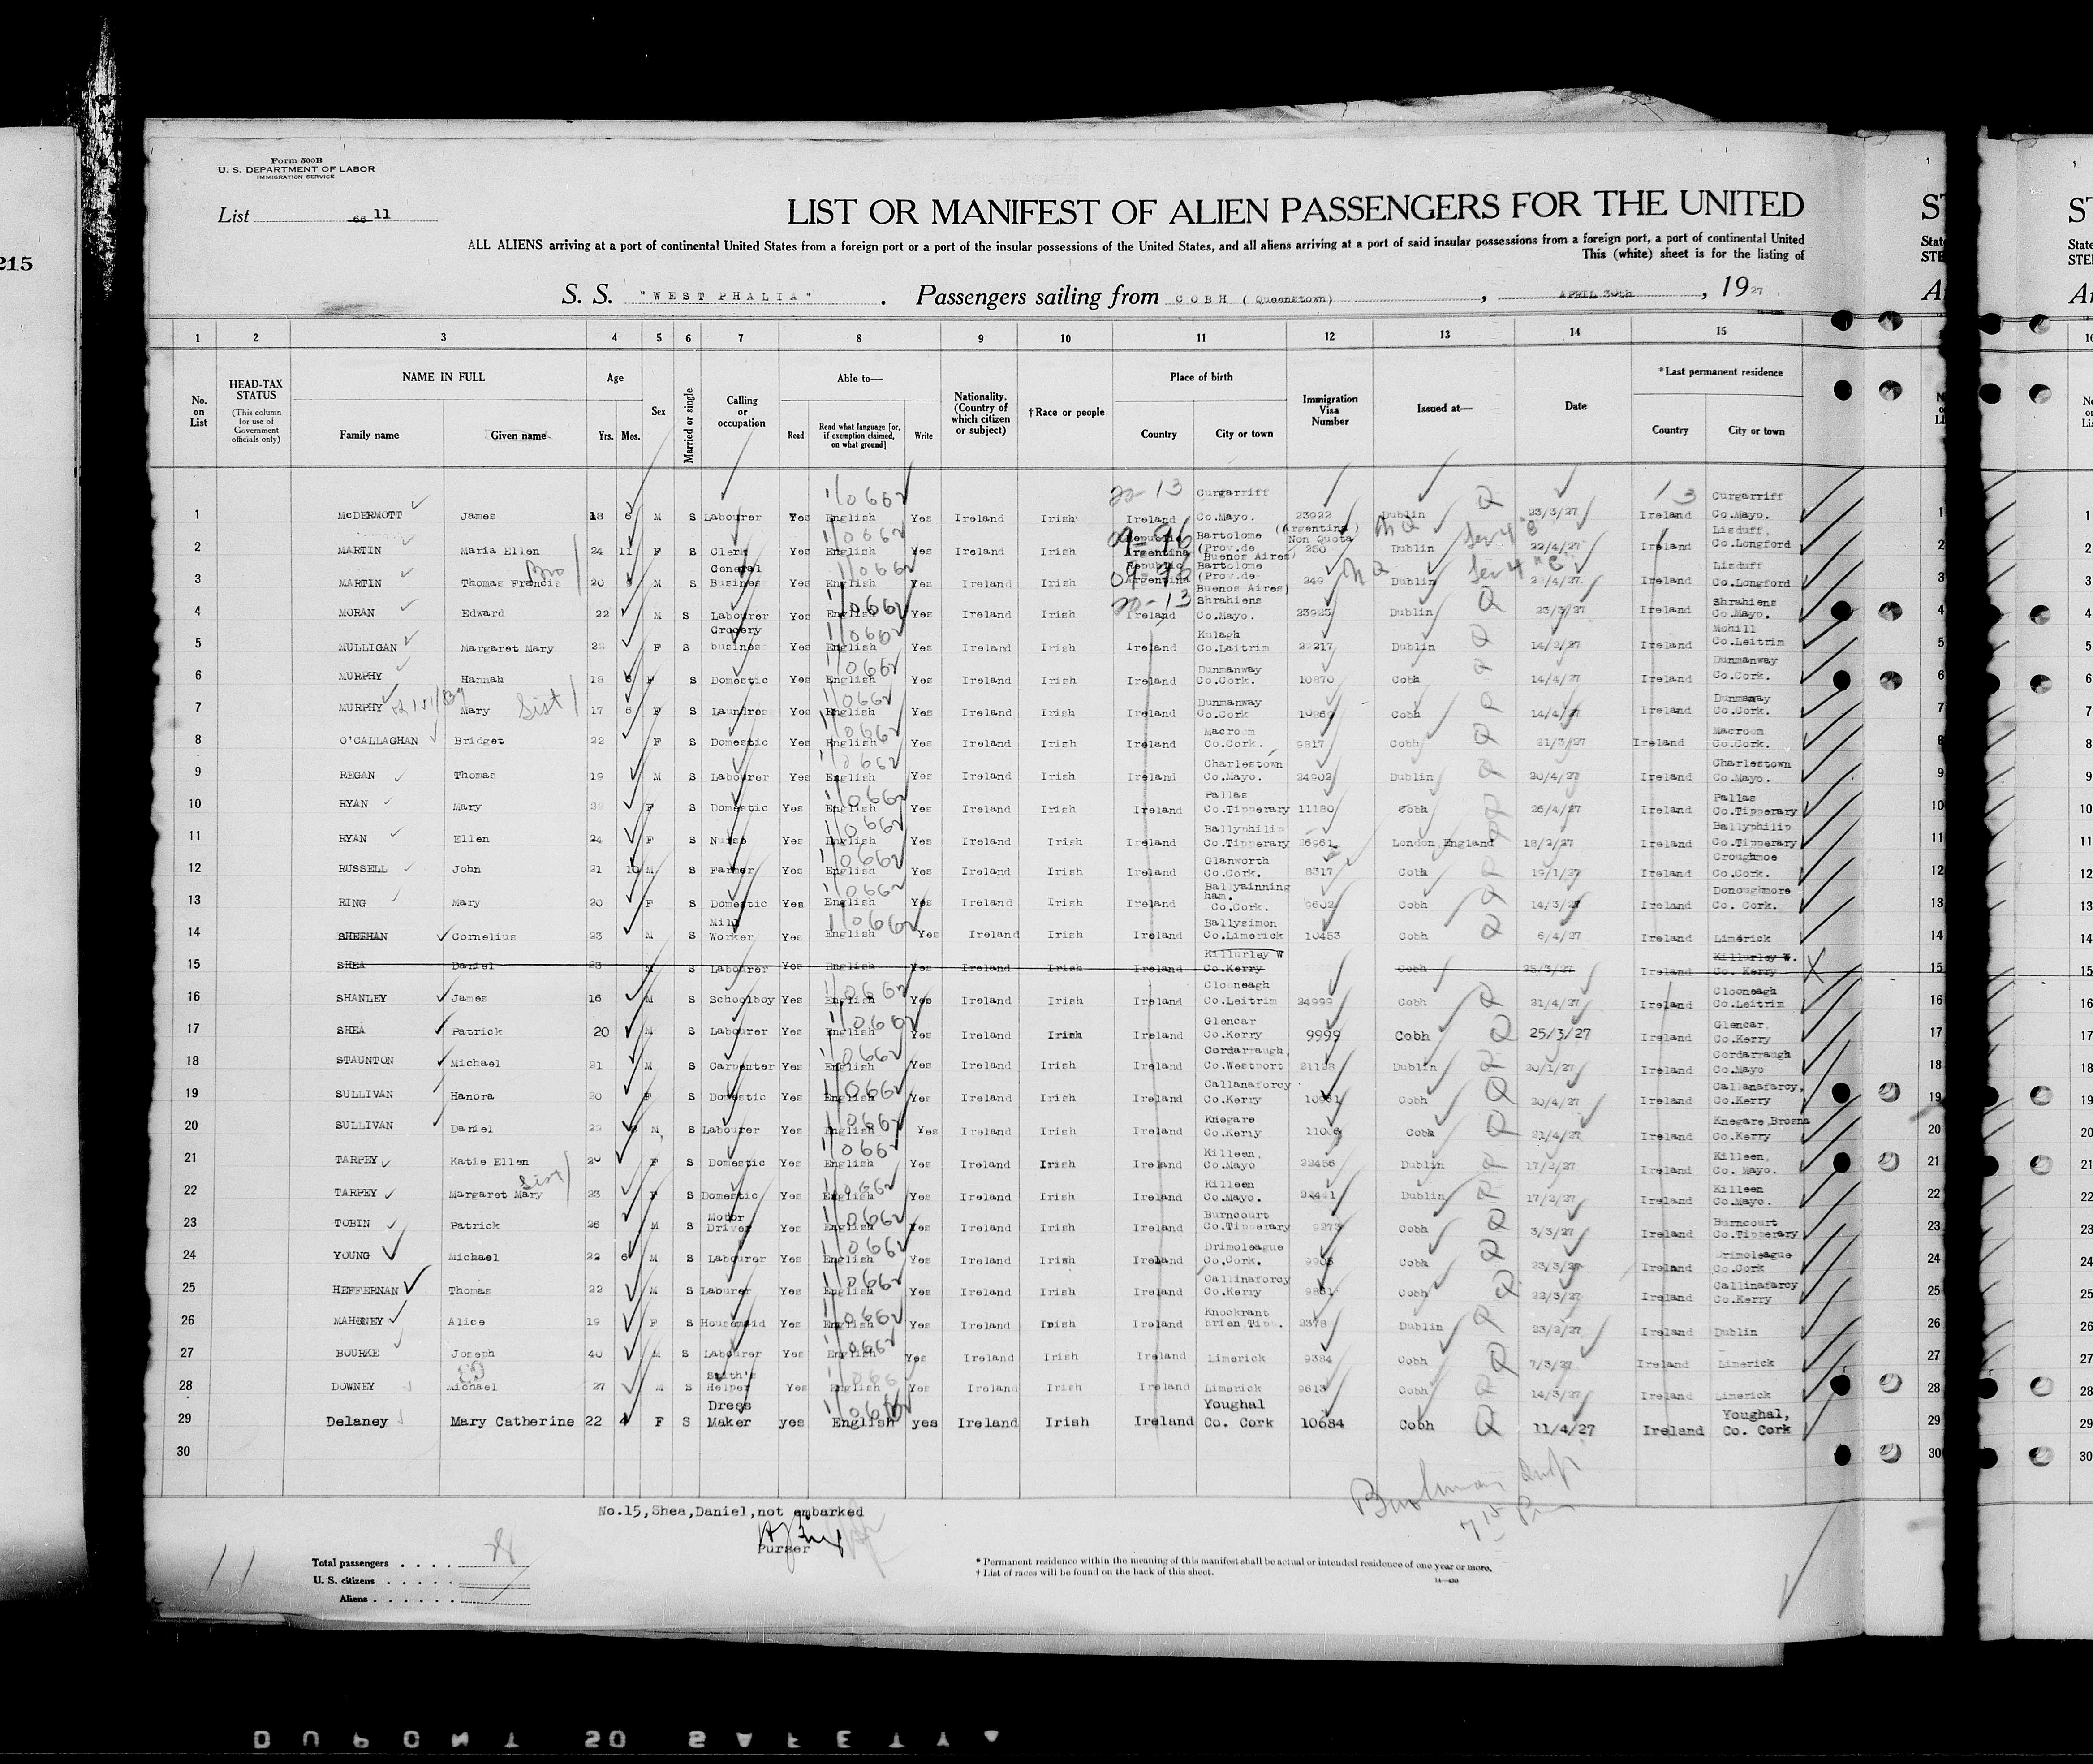 215
Form 500B
U. S. DEPARTMENT OF LABOR
IMMIGRATION SERVICE
List 66 11
LIST OR MANIFEST OF ALIEN PASSENGERS FOR THE UNITED
ALL ALIENS arriving at a port of continental United States from a foreign port or a port of the insular possessions of the United States, and all aliens arriving at a port of said insular possessions from a foreign port, a port of continental United
This (white) sheet is for the listing of
S. S. "WEST PHALIA". Passengers sailing from COBH (Queenstown), APRIL 30th, 1927
1 2 3 4 5 6 7 8 9 10 11 12 13 14 15
No. on List
HEAD-TAX STATUS (This column for use of Government officials only)
NAME IN FULL Family name Given name
Age Yrs. Mos.
Sex
Married or single
Calling or occupation
Able to— Read Read what language [or, if exemption claimed, on what ground] Write
Nationality. (Country of which citizen or subject)
†Race or people
Place of birth Country City or town
Immigration Visa Number
Issued at—
Date
*Last permanent residence Country City or town
1 McDERMOTT James 18 6 M S Labourer Yes English Yes Ireland Irish Ireland Curgarriff Co.Mayo. 23922 Dublin 23/3/27 Ireland Curgarriff Co.Mayo.
2 MARTIN Maria Ellen 24 11 F S Clerk Yes English Yes Ireland Irish Republic Argentina Bartolome (Prov.de Buenos Aires) (Argentina) Non Quota 250 Dublin 22/4/27 Ireland Lisduff, Co.Longford
3 MARTIN Thomas Francis Bro 20 M S General Business Yes English Yes Ireland Irish Republic Argentina Bartolome (Prov.de Buenos Aires) 249 Dublin /4/27 Ireland Lisduff Co.Longford
4 MORAN Edward 22 M S Labourer Yes English Yes Ireland Irish Ireland Shrahiens Co.Mayo. 23923 Dublin 23/3/27 Ireland Shrahiens Co.Mayo.
5 MULLIGAN Margaret Mary 22 F S Grocery business Yes English Yes Ireland Irish Ireland Kulagh Co.Laitrim 22217 Dublin 14/2/27 Ireland Mohill Co.Leitrim
6 MURPHY Hannah 18 F S Domestic Yes English Yes Ireland Irish Ireland Dunmanway Co.Cork. 10870 Cobh 14/4/27 Ireland Dunmanway Co.Cork.
7 MURPHY Mary Sist 17 6 F S Laundress Yes English Yes Ireland Irish Ireland Dunmanway Co.Cork 10869 Cobh 14/4/27 Ireland Dunmanway Co.Cork.
8 O'CALLAGHAN Bridget 22 F S Domestic Yes English Yes Ireland Irish Ireland Macroom Co.Cork. 9817 Cobh 21/3/27 Ireland Macroom Co.Cork.
9 REGAN Thomas 19 M S Labourer Yes English Yes Ireland Irish Ireland Charlestown Co.Mayo. 24902 Dublin 20/4/27 Ireland Charlestown Co.Mayo.
10 RYAN Mary 22 F S Domestic Yes English Yes Ireland Irish Ireland Pallas Co.Tipperary 11180 Cobh 26/4/27 Ireland Pallas Co.Tipperary
11 RYAN Ellen 24 F S Nurse Yes English Yes Ireland Irish Ireland Ballyphilip Co.Tipperary 26961 London England 18/2/27 Ireland Ballyphilip Co.Tipperary
12 RUSSELL John 21 10 M S Farmer Yes English Yes Ireland Irish Ireland Glanworth Co.Cork. 8317 Cobh 19/1/27 Ireland Croughmoe Co.Cork.
13 RING Mary 20 F S Domestic Yes English Yes Ireland Irish Ireland Ballyainning ham. Co.Cork. 9602 Cobh 14/3/27 Ireland Donoughmore Co. Cork.
14 SHEEHAN Cornelius 23 M S Mill Worker Yes English Yes Ireland Irish Ireland Ballysimon Co.Limerick 10453 Cobh 6/4/27 Ireland Limerick
15 SHEA Daniel 23 M S Labourer Yes English Yes Ireland Irish Ireland Killurley W Co.Kerry Cobh 25/3/27 Ireland Killurley W. Co. Kerry X
16 SHANLEY James 16 M S Schoolboy Yes English Yes Ireland Irish Ireland Clooneagh Co.Leitrim 24999 Cobh 21/4/27 Ireland Clooneagh Co.Leitrim
17 SHEA Patrick 20 M S Labourer Yes English Yes Ireland Irish Ireland Glencar Co.Kerry 9999 Cobh 25/3/27 Ireland Glencar, Co.Kerry
18 STAUNTON Michael 21 M S Carpenter Yes English Yes Ireland Irish Ireland Cordarraugh, Co.Westport Dublin 20/1/27 Ireland Cordarraugh Co.Mayo
19 SULLIVAN Hanora 20 F S Domestic Yes English Yes Ireland Irish Ireland Callanaforcy Co.Kerry Cobh 20/4/27 Ireland Callanafarcy, Co.Kerry
20 SULLIVAN Daniel 22 M S Labourer Yes English Yes Ireland Irish Ireland Knegare Co.Kerry Cobh 21/4/27 Ireland Knegare,Brosna Co.Kerry
21 TARPEY Katie Ellen F S Domestic Yes English Yes Ireland Irish Ireland Killeen, Co.Mayo 22456 Dublin 17/2/27 Ireland Killeen, Co. Mayo.
22 TARPEY Margaret Mary Sist 23 F S Domestic Yes English Yes Ireland Irish Ireland Killeen Co.Mayo. Dublin 17/2/27 Ireland Killeen Co.Mayo.
23 TOBIN Patrick 26 M S Motor Driver Yes English Yes Ireland Irish Ireland Burncourt Co.Tipperary 9273 Cobh 3/3/27 Ireland Burncourt Co.Tipperary
24 YOUNG Michael 22 6 M S Labourer Yes English Yes Ireland Irish Ireland Drimoleague Co.Cork. Cobh 23/3/27 Ireland Drimoleague Co.Cork
25 HEFFERNAN Thomas 22 M S Laburer Yes English Yes Ireland Irish Ireland Callinaforcy Co.Kerry 9861 Cobh 22/3/27 Ireland Callinafarcy Co.Kerry
26 MAHONEY Alice 19 F S Housemaid Yes English Yes Ireland Irish Ireland Knockrant brien,Tipp. 2378 Dublin 23/2/27 Ireland Dublin
27 BOURKE Joseph 40 M S Labourer Yes English Yes Ireland Irish Ireland Limerick 9384 Cobh 7/3/27 Ireland Limerick
28 DOWNEY Michael 27 M S Smith's Helper Yes English Yes Ireland Irish Ireland Limerick 9613 Cobh 14/3/27 Ireland Limerick
29 Delaney Mary Catherine 22 4 F S Dress Maker yes English yes Ireland Irish Ireland Youghal Co. Cork 10684 Cobh 11/4/27 Ireland Youghal, Co. Cork
30
No.15,Shea,Daniel,not embarked
Purser
11
Total passengers . . . .
U. S. citizens . . . . .
Aliens . . . . . .
* Permanent residence within the meaning of this manifest shall be actual or intended residence of one year or more.
† List of races will be found on the back of this sheet.
DUPONT SAFETY